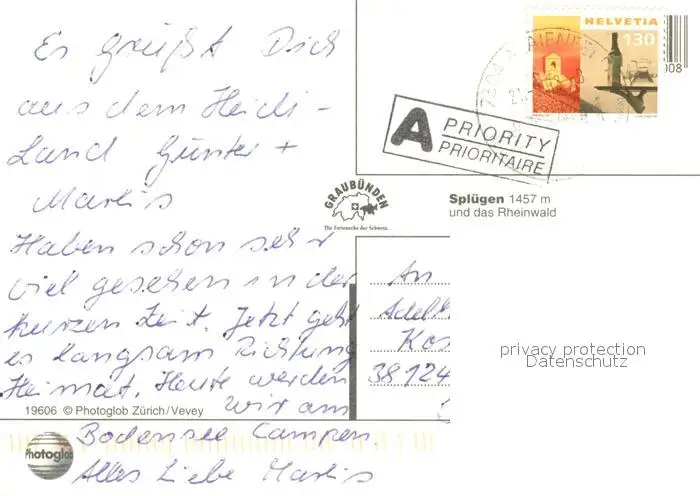 Es grüßt Dich
aus dem Heidi-
Land Günter +
Marlis
Haben schon sehr
viel gesehen in der
kurzen Zeit. Jetzt geht
es langsam Richtung
Heimat. Heute werden
wir am
Bodensee Campen.
Alles Liebe Marlis
HELVETIA
130
008
A PRIORITY
PRIORITAIRE
GRAUBÜNDEN
Die Ferienecke der Schweiz.
Splügen 1457 m
und das Rheinwald
An
38124
privacy protection
Datenschutz
19606 © Photoglob Zürich/Vevey
Photoglob